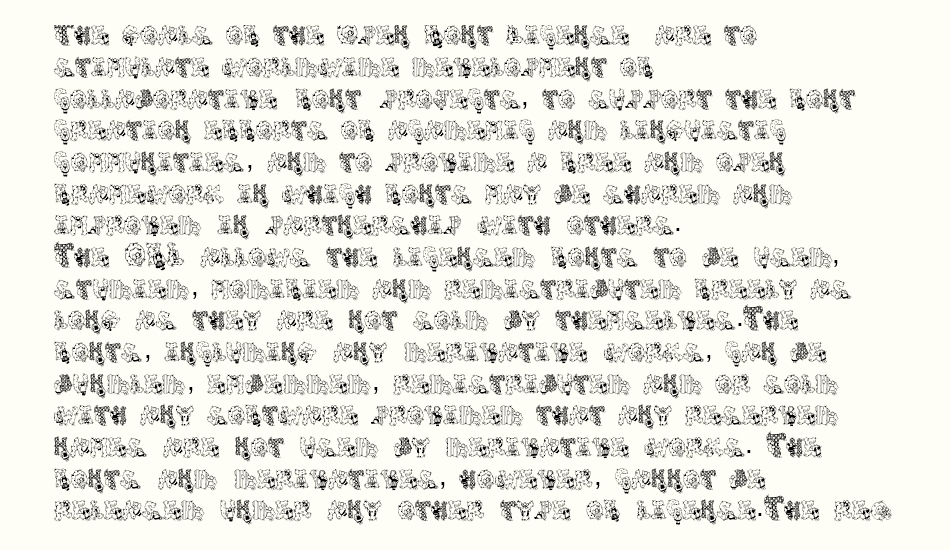 The goals of the Open Font License are to
stimulate worldwide development of
collaborative font projects, to support the font
creation efforts of academic and linguistic
communities, and to provide a free and open
framework in which fonts may be shared and
improved in partnership with others.
The OFL allows the licensed fonts to be used,
studied, modified and redistributed freely as
long as they are not sold by themselves.The
fonts, including any derivative works, can be
bundled, embedded, redistributed and or sold
with any software provided that any reserved
names are not used by derivative works. The
fonts and derivatives, however, cannot be
released under any other type of license.The req